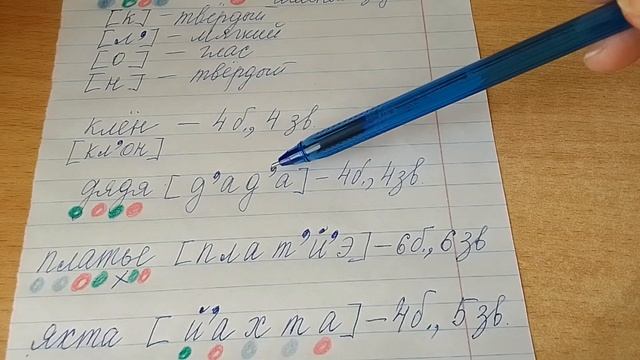 [к] – твёрдый
[л'] – мягкий
[о] – глас
[н] – твёрдый
клён – 4 б., 4 зв
[кл'он]
дядя [д'ад'а] – 4б., 4зв.
платье [плат'й'э] – 6б., 6 зв
яхта [й'ахта] – 4б., 5 зв.